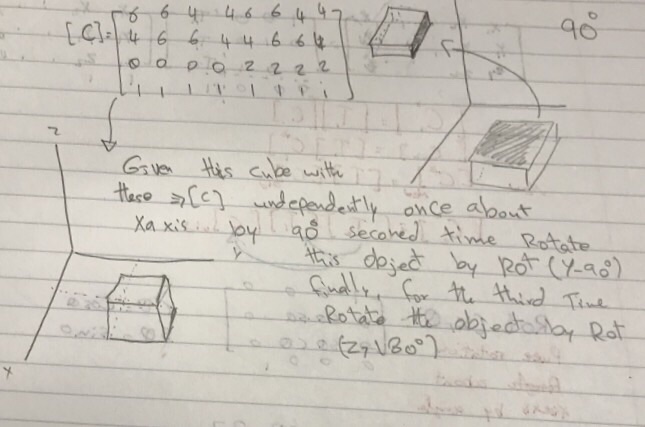 6 6 4 4 6 6 4 4
[C]= 4 6 6 4 4 6 6 4
0 0 0 0 2 2 2 2
1 1 1 1 1 1 1 1
90°
Z
Given this cube with
these ⇒ [C] independently once about
X axis by 90° second time Rotate
Y
this object by Rot (Y-90°)
finally, for the third Time
Rotate the object by Rot
(Z, 180°)
X